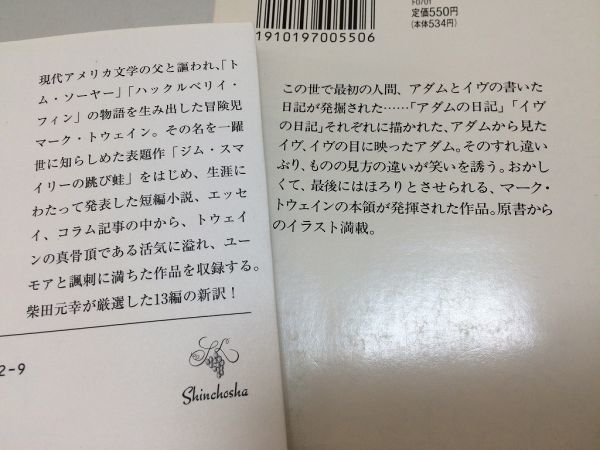 現代アメリカ文学の父と謳われ、「ト
ム・ソーヤー」「ハックルベリイ・
フィン」の物語を生み出した冒険児
マーク・トウェイン。その名を一躍
世に知らしめた表題作「ジム・スマ
イリーの跳び蛙」をはじめ、生涯に
わたって発表した短編小説、エッセ
イ、コラム記事の中から、トウェイ
ンの真骨頂である活気に溢れ、ユー
モアと諷刺に満ちた作品を収録する。
柴田元幸が厳選した13編の新訳!
2-9
Shinchosha
F0701
定価550円
(本体534円)
1910197005506
この世で最初の人間、アダムとイヴの書いた
日記が発掘された……「アダムの日記」「イヴ
の日記」それぞれに描かれた、アダムから見た
イヴ、イヴの目に映ったアダム。そのすれ違い
ぶり、ものの見方の違いが笑いを誘う。おかし
くて、最後にはほろりとさせられる、マーク・
トウェインの本領が発揮された作品。原書から
のイラスト満載。